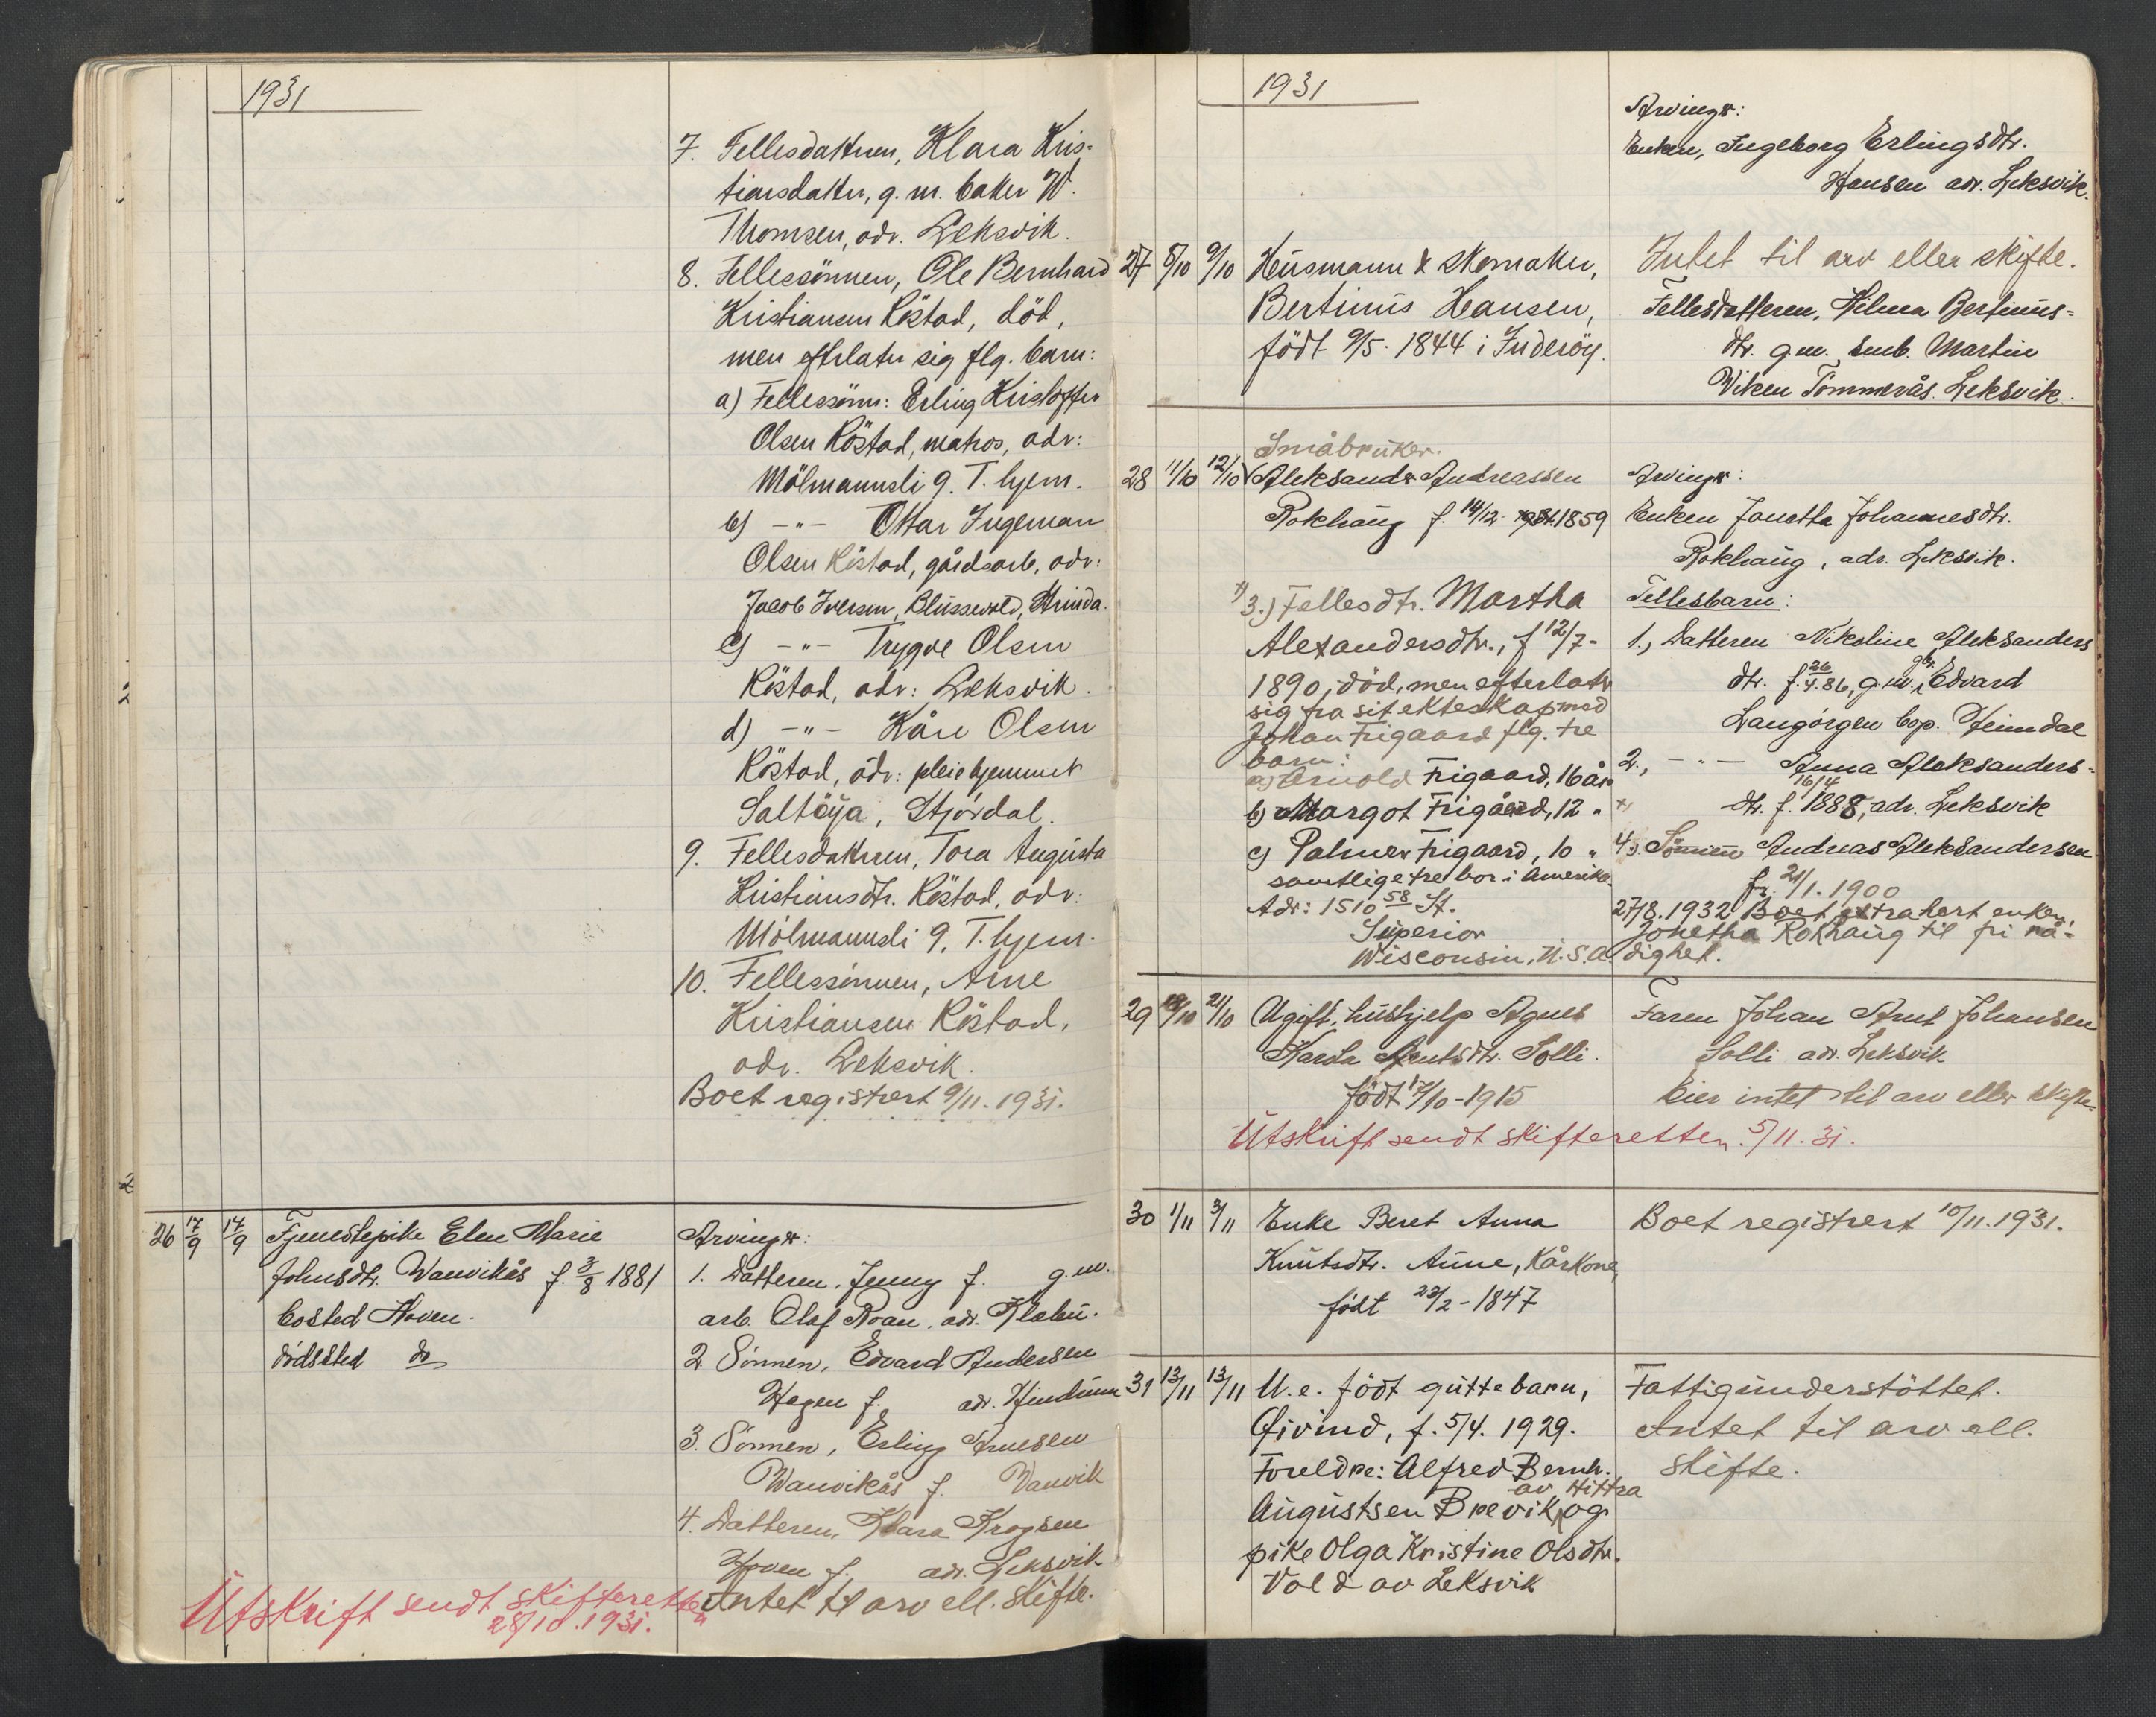 1931
7. Fellesdatteren, Klara Kris-
tiansdatter, g. m. baker W.
Thomsen, adr. Leksvik.
8. Fellessönnen, Ole Bernhard
Kristiansen Röstad, död,
men efterlater sig flg. barn:
a) Fellessönn: Erling Kristoffer
Olsen Röstad, matros, adr:
Mölmannsli 9. T. hjem.
b) -"- Ottar Ingeman
Olsen Röstad, gårdsarb, adr:
Jacob Iversen, Blussevold, Strinda.
c) -"- Trygve Olsen
Röstad, adr: Leksvik.
d) -"- Kåre Olsen
Röstad, adr: pleiehjemmet
Saltöya, Stjördal.
9. Fellesdatteren, Tora Augusta
Kristiansdtr. Röstad, adr:
Mölmannsli 9, T. hjem.
10. Fellessönnen, Arne
Kristiansen Röstad,
adr. Leksvik.
Boet registrert 9/11. 1931.
26 17/9 17/9 Tjenestepike Elen Marie
Johnsdtr. Wanvikås f. 3/8 1881
bosted Hoven.
dödssted do
Arvinger:
1. Datteren, Jenny f. g.m.
arb. Olaf Roan. adr. Klæbu.
2 Sönnen, Edvard Andersen
Hagen f. adr. Hindrum
3. Sönnen, Erling Arnesen
Wanvikås f. Vanvik
4. Datteren, Klara Krogsen
Hoven f. adr. Leksvik
Intet til arv ell. skifte.
Utskrift sendt skifteretten
28/10. 1931.
1931
Arvinger:
Enken, Ingeborg Erlingsdtr.
Hansen adr. Leksvik.
27 5/10 9/10 Husmann & skomaker,
Bertinus Hansen,
födt 9/5. 1844 i Inderöy.
Intet til arv eller skifte.
Fellesdatteren, Hilma Bertinus-
dtr. gm. smb. Martin
Viken Tömmerås. Leksvik.
Småbruker.
28 11/10 12/10 Aleksander Andreassen
Rokhaug f. 14/12. 1859
x) 3.) Fellesdtr. Martha
Alexandersdtr., f 12/7-
1890, död, men efterlater
sig fra sit ekteskap med
Johan Frigaard flg. tre
barn:
a) Arnold Frigaard, 16 år
b) Margot Frigaard, 12 "
c) Palmer Frigaard, 10 "
samtlige tre bor i Amerika.
Adr: 1510 58 St.
Superior
Wisconsin, U.S.A.
Arvinger:
Enken Jonetta Johannesdtr.
Rokhaug, adr. Leksvik.
Fellesbarn:
1., Datteren Nikoline Aleksanders
dtr. f. 26/4.86, g.m. gbr. Edvard
Langörgen bop. Heimdal
2., -"- Anna Aleksanders-
x) dtr. f. 16/4 1888, adr. Leksvik
4., Sönnen Andreas Aleksandersen
f. 21/1. 1900
27/8. 1932 Boet extradert enken,
Jonetha Rokhaug til fri rå-
dighet.
29 /10 21/10 Ugift, hushjelp Agnes
Karla Arntsdtr. Solli.
födt 17/10-1915
Faren Johan Arnt Johansen
Solli adr. Leksvik
Eier intet til arv eller skifte.
Utskrift sendt skifteretten. 5/11. 31.
30 1/11 3/11 Enke Beret Anna
Knutsdtr. Aune, Kårkone,
födt 22/2-1847
Boet registrert 10/11. 1931.
31 13/11 13/11 U. e. födt guttebarn,
Öivind, f. 5/4. 1929.
Foreldre: Alfred Bernh.
av Hittra
Augustsen Brevik, og
pike Olga Kristine Olsdtr.
Vold av Leksvik
Fattigunderstöttet.
Intet til arv ell.
skifte.